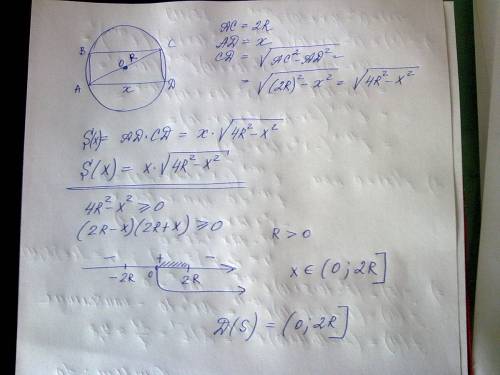 B C
O R
A x D
AC = 2R
AD = x
CD = √(AC²-AD²) =
= √((2R)²-x²) = √(4R²-x²)
S(x) = AD·CD = x·√(4R²-x²)
S(x) = x·√(4R²-x²)
4R²-x² ≥ 0
(2R-x)(2R+x) ≥ 0
R > 0
- + -
-2R 0 2R
x ∈ (0; 2R]
D(S) = (0; 2R]